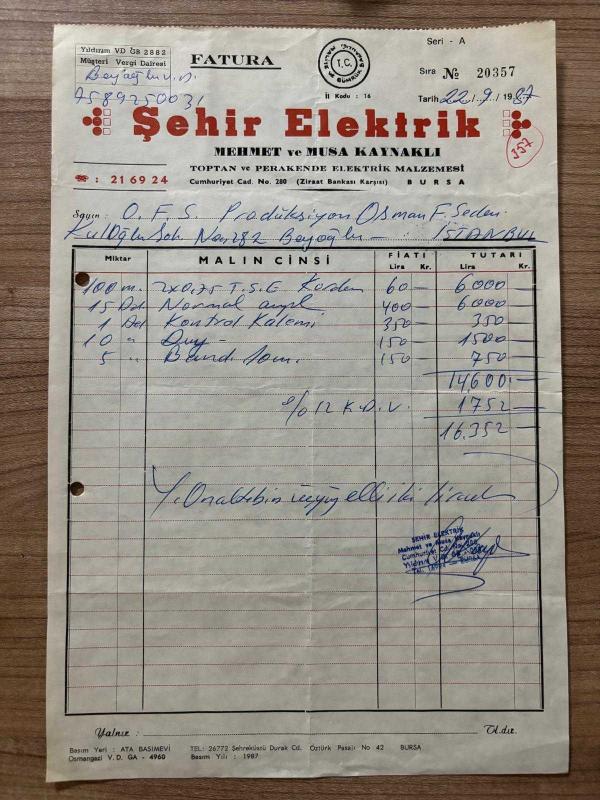 Yıldırım VD ÜB 2882
Müşteri Vergi Dairesi
Beyoğlu v.d.
7589250031
FATURA
T.C.
MALİYE ve GÜMRÜK BAKANLIĞI
İl Kodu : 16
Seri - A
Sıra № 20357
Tarih 22/9/1987
Şehir Elektrik
357
MEHMET ve MUSA KAYNAKLI
TOPTAN ve PERAKENDE ELEKTRİK MALZEMESİ
☎ : 21 69 24
Cumhuriyet Cad. No. 280 (Ziraat Bankası Karşısı) BURSA
Sayın : O.F.S. Prodüksiyon Osman F. Seden
Kuloğlu Sok No: 282 Beyoğlu — İSTANBUL
Miktar MALIN CİNSİ FİATI TUTARI
Lira Kr. Lira Kr.
100 m. 2x0,75 T.S.E Kordon 60 — 6000 —
15 Ad Normal ampl 400 — 6000 —
1 Ad Kontrol Kalemi 350 — 350 —
10 " Duy — 150 — 1500 —
5 " Band 150 — 750 —
14,600.—
%12 K.D.V. 1752 —
16.352 —
Y. Onaltıbin üçyüzelliiki liradır
ŞEHİR ELEKTRİK
Mehmet ve Musa Kaynaklı
Cumhuriyet Cd. No. 280
Yalnız : Tl.dır.
Basım Yeri : ATA BASIMEVİ TEL: 26772 Şehreküstü Durak Cd. Öztürk Pasajı No 42 BURSA
Osmangazi V. D. GA - 4960 Basım Yılı : 1987